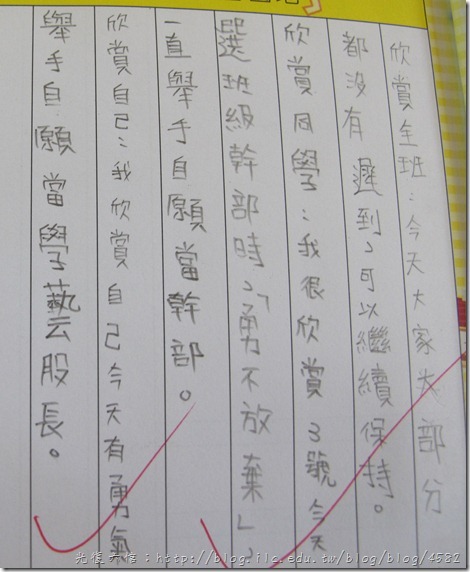 欣賞全班：今天大家大部分
都沒有遲到，可以繼續保持。
欣賞同學：我很欣賞3號今天
選班級幹部時，「勇不放棄」，
一直舉手自願當幹部。
欣賞自己：我欣賞自己今天有勇氣
舉手自願當學藝股長。
http://blog.ilc.edu.tw/blog/blog/4582